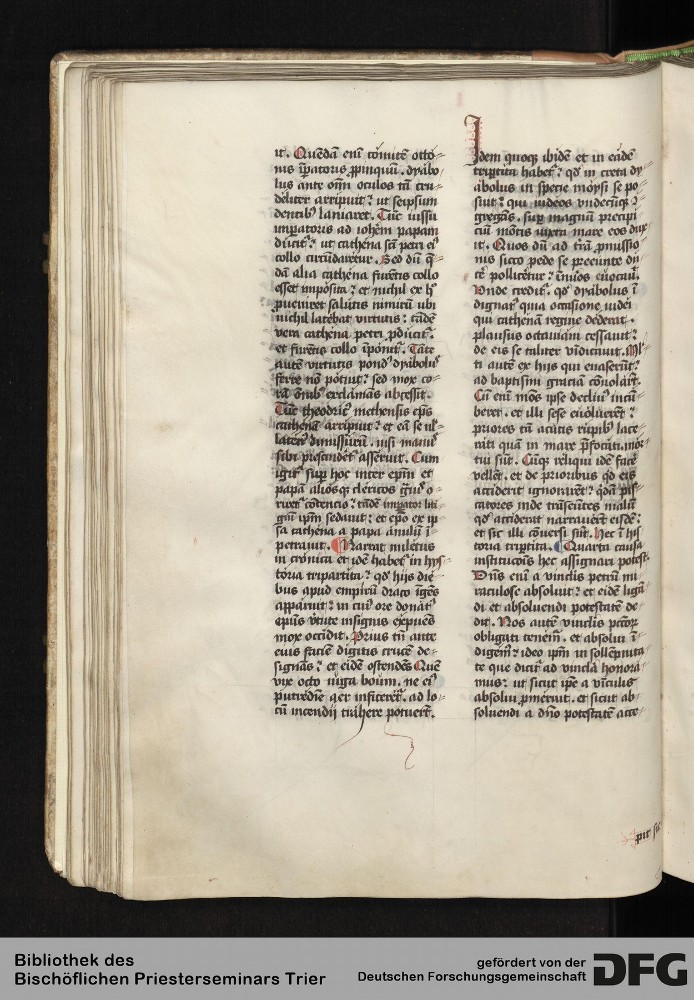 it. Quēdā eni͛ comitē otto⸗
nis īp̄atoris ꝓpinquū. dyabo⸗
lus ante om̄i oculos tā cru⸗
deliter arripuit: ut seipsum
dentibꝰ laniaret. Tūc iussu
imꝑatoris ad ioh̄em papam
ducit᷑: ut cathena sc̄i petri eiꝰ
collo circūdaretur. Sed dū q̄⸗
dā alia cathena furētis collo
esset imposita: et nichil ex h̄
ꝓueniret salutis nimirū ubi
nichil latebat virtutis: tādē
vera cathena petri ꝓducit᷑:
et furētis collo īponit᷑. Tāte
autē virtutis pondꝰ dyabolꝰ
ferre nō potuit: sed mox co⸗
rā om̄ibꝰ exclamās abcessit.
Tūc theodricꝰ methensis ep̄s
cathenā arripuit: et eā se ul⸗
latenꝰ dimissurū. nisi manuꝰ
sibi prescindēt᷑ asseruit. Cum
igit᷑ suꝑ hoc inter ep̄m et
papā aliosqꝫ clericos g̃uꝰ o⸗
riret᷑ cōtencio: tādē imꝑator liti⸗
giū ip̄m sedauit: et ep̄o ex ip̄
sa cathena a papa anulū ī⸗
petrauit. Narrat miletus
in cronica et idē habet᷑ in hys⸗
toria tripartita: qd̕ hijs die⸗
bus apud empirū draco īgēs
apparuit: in cuiꝰ ore donatꝰ
ep̄us v̓tute insignis expuēs
mox occidit. Prius tn̄ ante
eius faciē digitis crucē de⸗
signās: et eidē ostendēs Quē
vix octo iuga boum. ne eiꝰ
putredīe aer inficeret᷑. ad lo⸗
cū incendij trahere potuer̄t.
Idem quoqꝫ ibidē et in eādē
tripᵗita habet᷑: qd̕ in creta dy⸗
abolus in specie moysi se po⸗
suit: qui iudeos vndecūqꝫ ꝯ⸗
gregās. suꝑ magnū precipi⸗
ciū mōtis iuxta mare eos dux⸗
it. Quos dū ad t̄rā ꝓmissio⸗
nis sicco pede se preeunte du
cē polliceret᷑: v̄niuos euocauit.
Vnde credit᷑. qd̕ dyabolus ī⸗
dignatꝰ quia occasione iudei
qui cathenā regine dederat.
plausus octauiani cessauit:
de eis se taliter vīdicauit. Ml̓⸗
ti autē ex hijs qui euaserūt:
ad baptismi graciā cōuolar̄t.
Cū enī mōs ipse decliuꝰ incū⸗
beret. et illi sese euoluer̄et:
priores tn̄ acutis rupibꝰ lace⸗
rati quā in mare p̄focati. mor⸗
tui sūt. Cūqꝫ reliqui idē facē
vellēt. et de prioribus qd̕ eis
acciderit ignorarēt: q̄dā pis⸗
catores inde trāseūtes malū
qd̕ acciderat narrauer̄t eisdē:
et sic illi cōuersi sūt. Hec ī his
toria tripᵗita. Quarta causa
institucōis hec assignari potest.
Dn̄s enī a vinclis petrū mi
raculose absoluit: et eidē ligā⸗
di et absoluendi potestatē de⸗
dit. Nos autē vinclis pctōꝝ
obligati tenem᷑. et absolui ī⸗
digem᷑: ideo ip̄m in sollēpnita⸗
te que dicit᷑ ad vincla honora⸗
mus: ut sicut ip̄e a vīculis
absolui ꝓmeruit. et sicut ab⸗
soluendi a dn̄o potestatē acce⸗
pit sic
Bibliothek des
Bischöflichen Priesterseminars Trier
gefördert von der
Deutschen Forschungsgemeinschaft
DFG